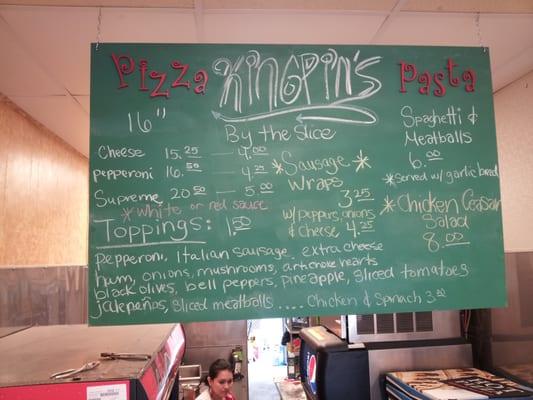 Pizza KINGPIN'S Pasta
16"
By the Slice
Cheese 15.25 - 4.00
pepperoni 16.50 - 4.25
Supreme 20.50 - 5.00
*White or red sauce
Toppings: 1.50
*Sausage*
Wraps
3.25
w/ peppers, onions
& cheese 4.25
Spaghetti &
Meatballs
6.00
*Served w/ garlic bread
*Chicken Ceasar
Salad
8.00
pepperoni, Italian sausage, extra cheese
ham, onions, mushrooms, artichoke hearts
black olives, bell peppers, pineapple, sliced tomatoes
jalepeños, sliced meatballs .... Chicken & Spinach 3.00
pepsi